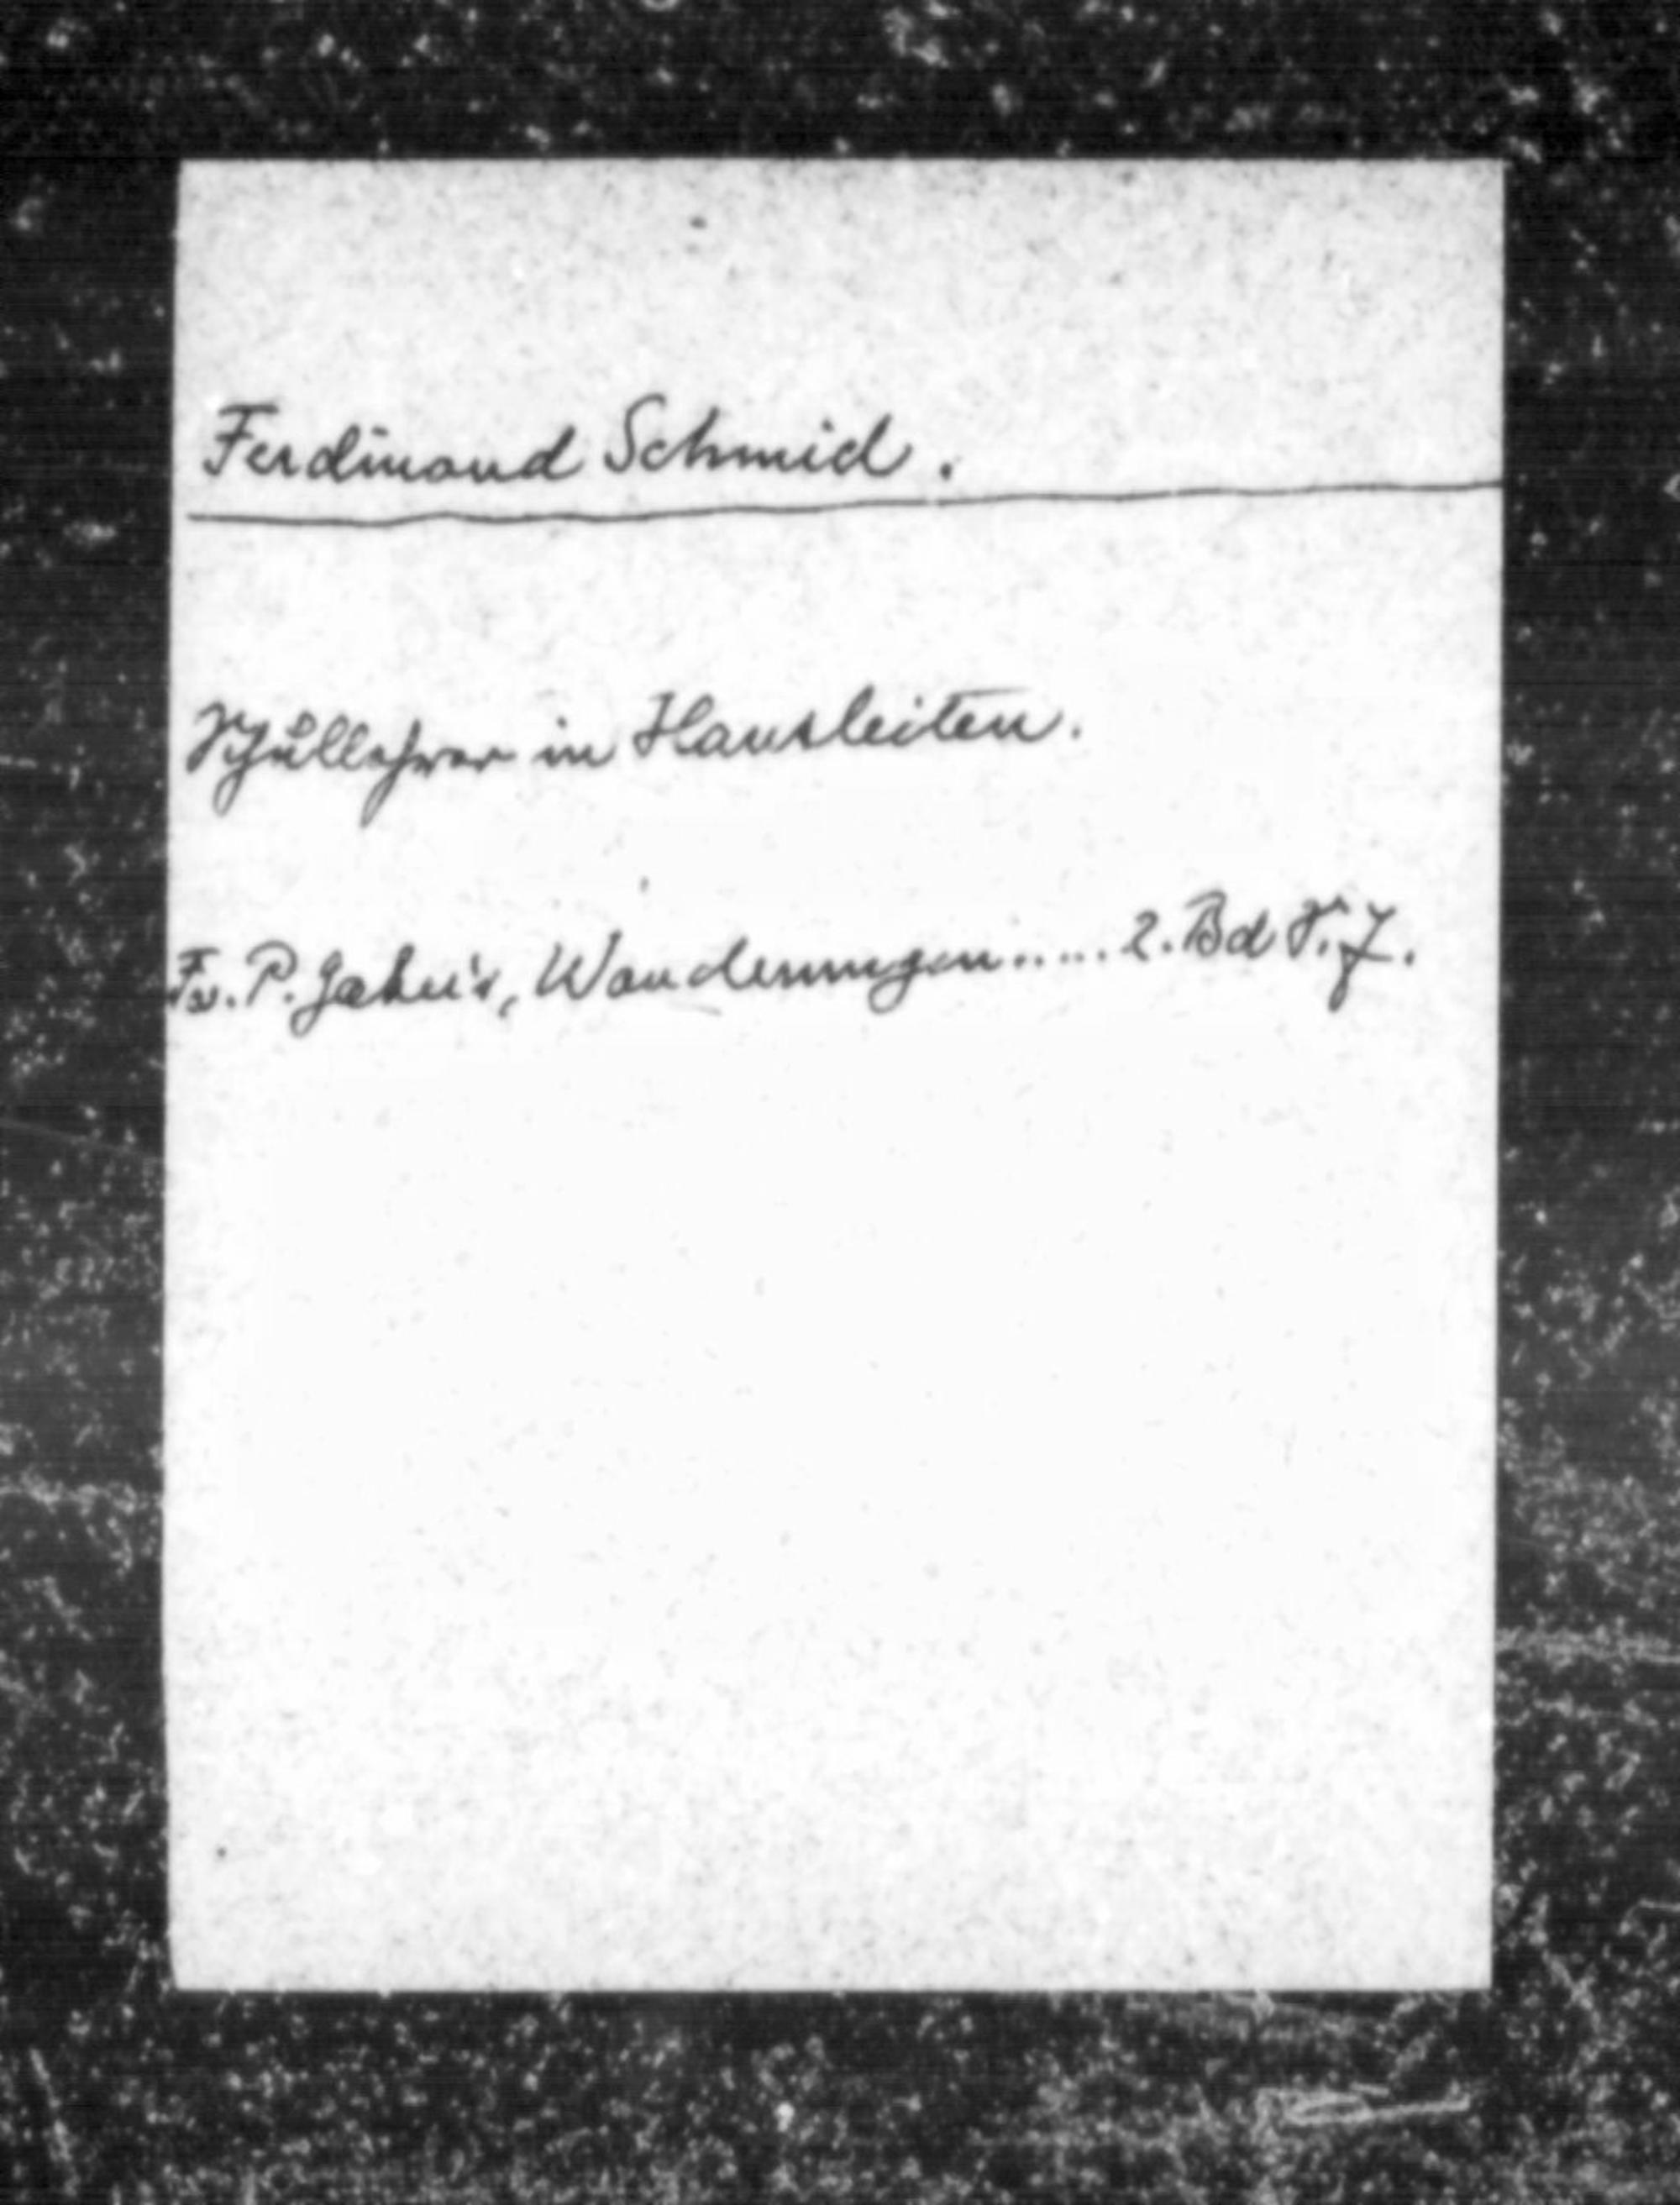 Ferdinand Schmid.
Schullehrer in Hausleiten.
Fr. P. Gaheis, Wanderungen..... 2. Bd S. 7.